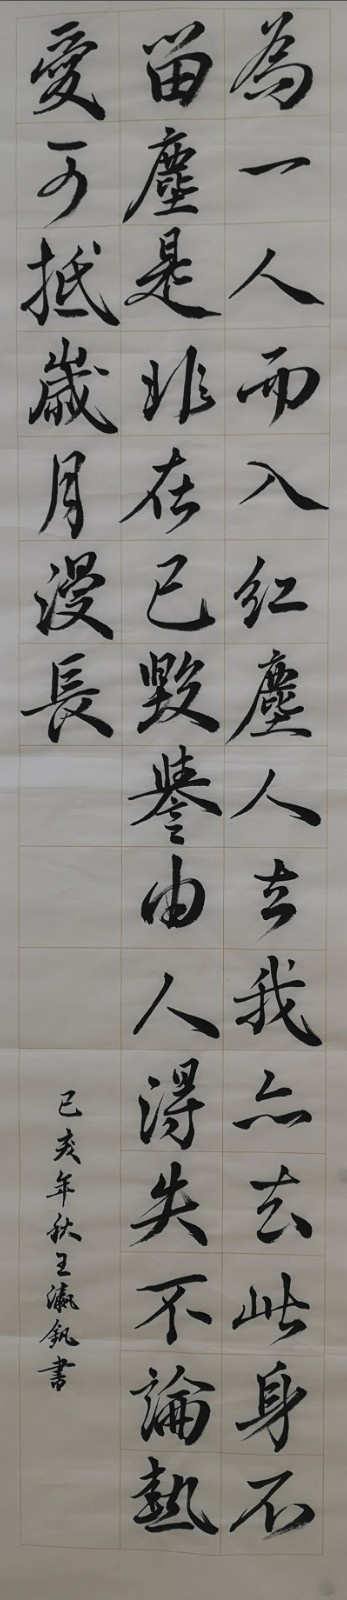 為一人而入紅塵人去我亦去此身不
留塵是非在己毀譽由人得失不論熱
愛可抵歲月漫長
己亥年秋王瀛書